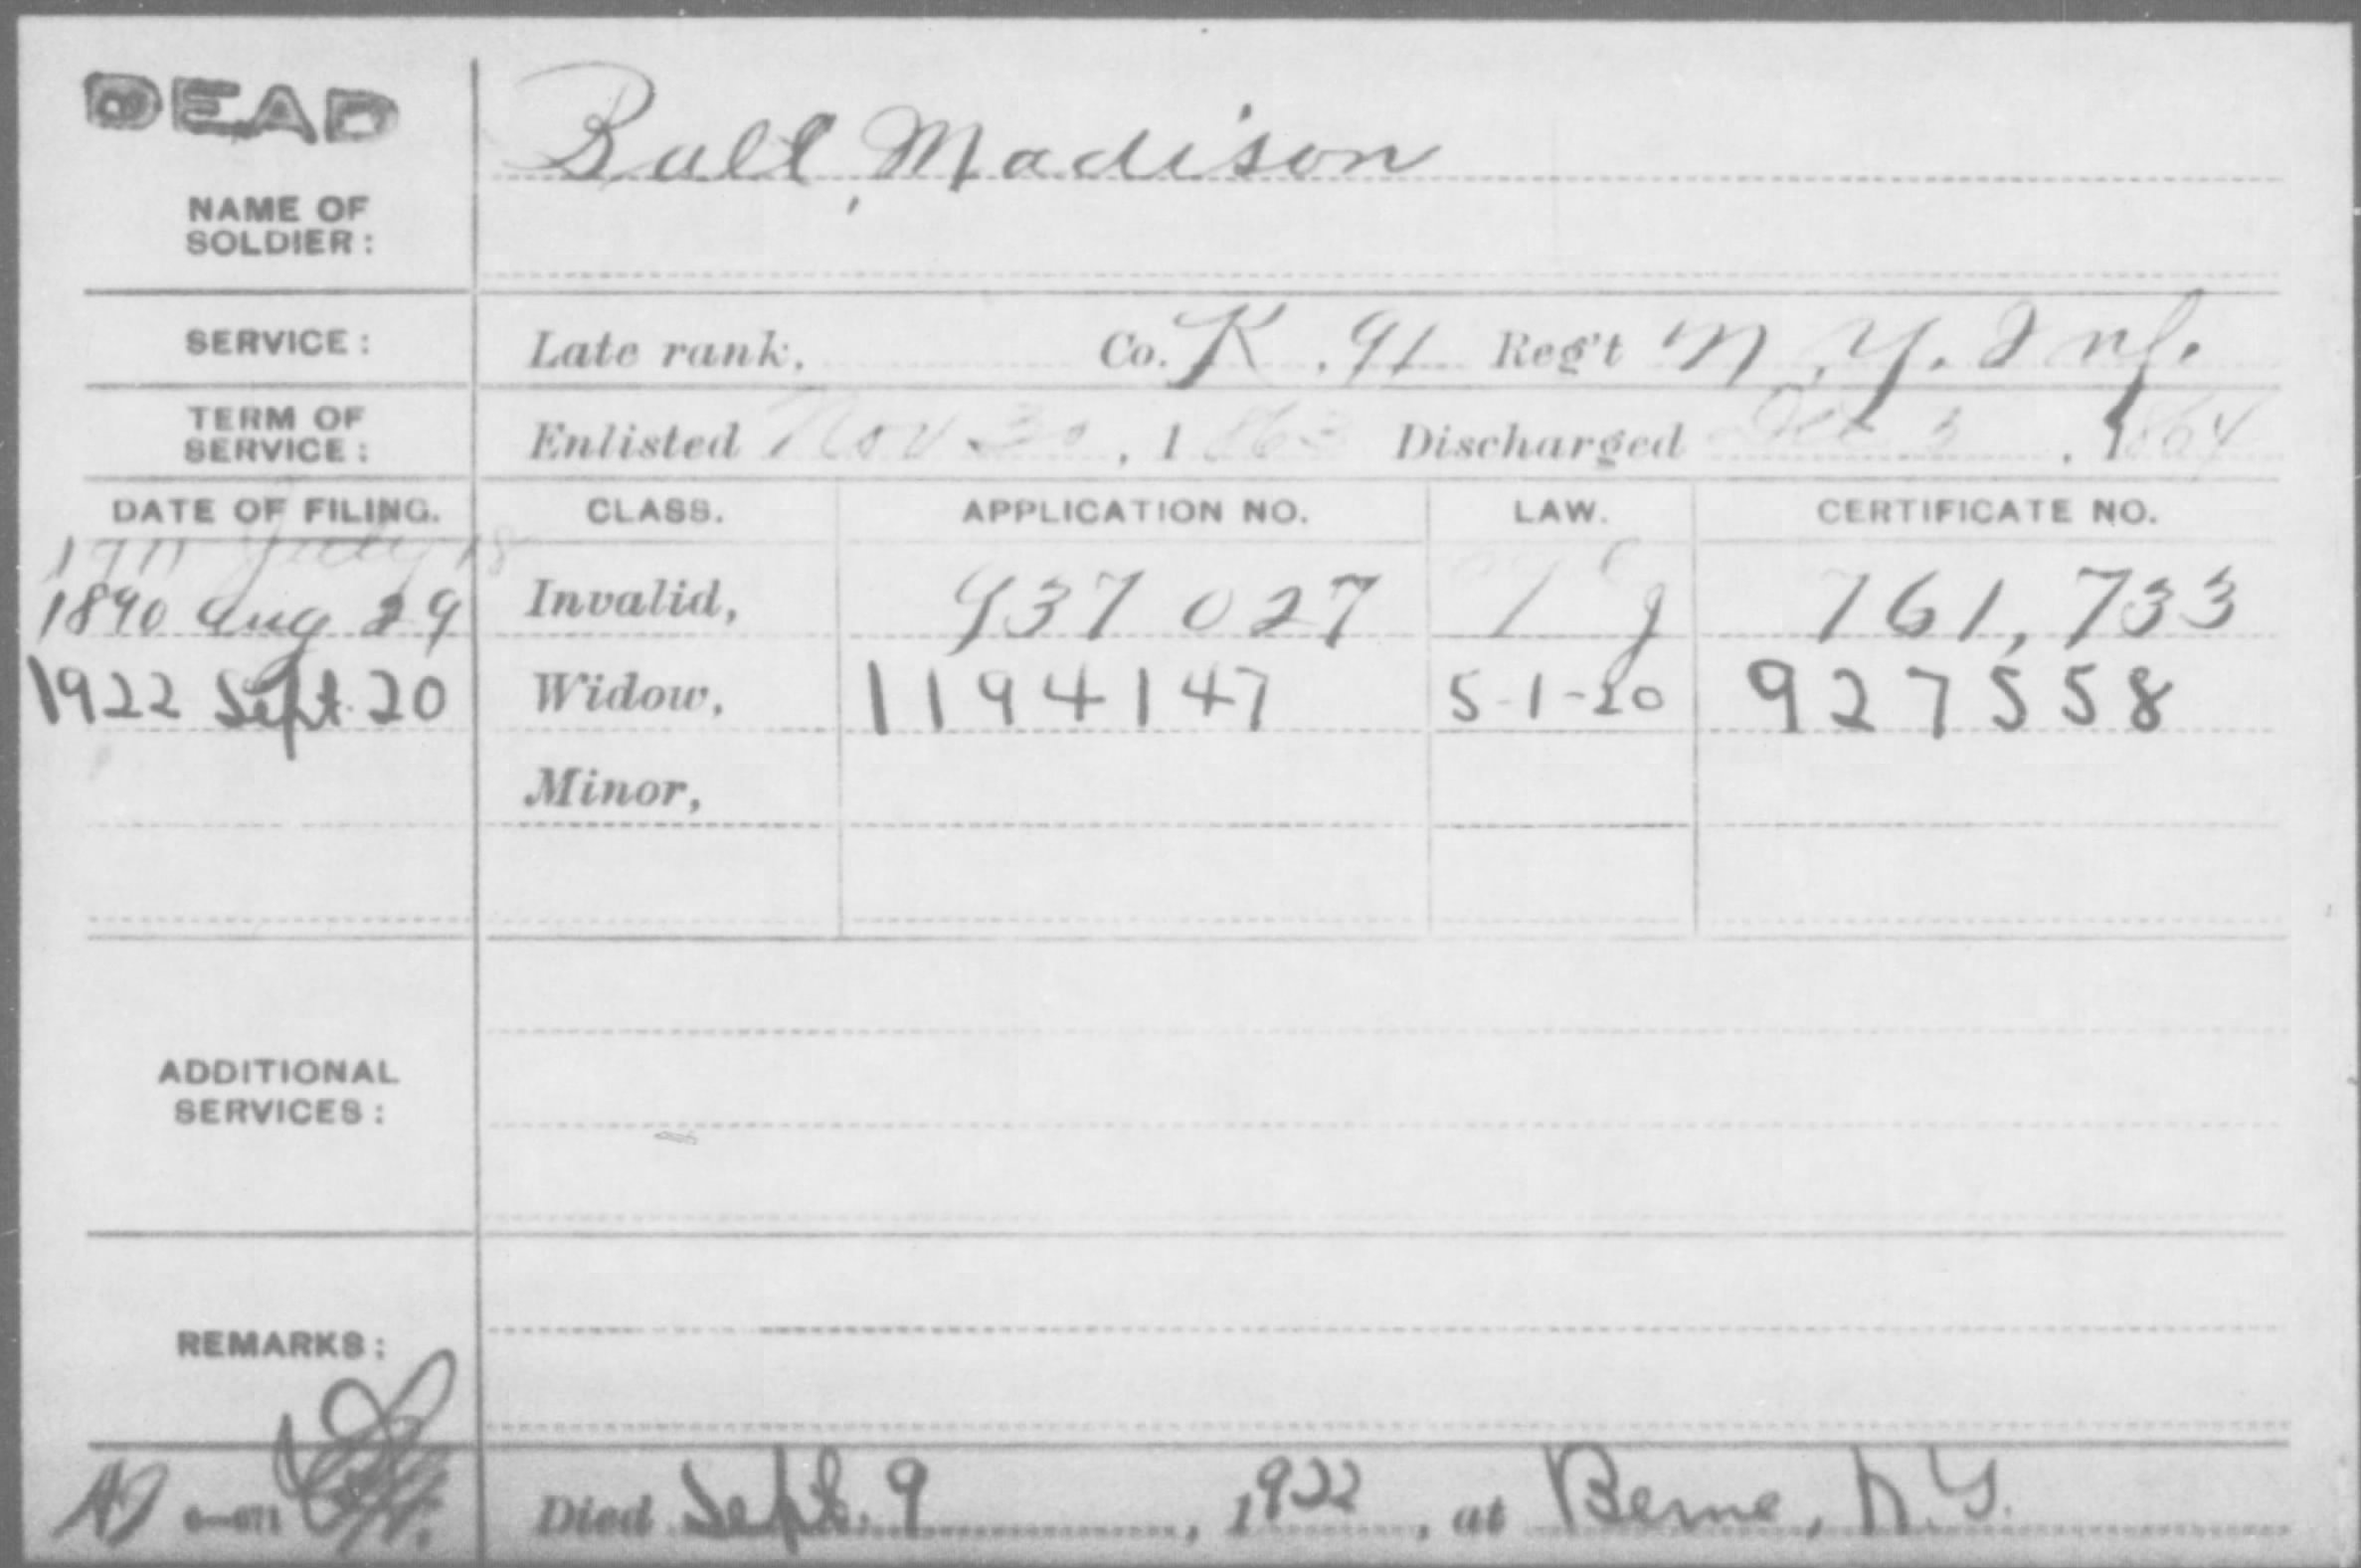 DEAD
Ball, Madison
NAME OF
SOLDIER:
SERVICE: Late rank, Co. K, 91 Reg't N.Y. Inf.
TERM OF
SERVICE: Enlisted Nov 30, 1863 Discharged 3, 1864
DATE OF FILING. CLASS. APPLICATION NO. LAW. CERTIFICATE NO.
July 18
1890 Aug 29 Invalid, 937 027 g 761,733
1922 Sept. 20 Widow, 1194147 5-1-20 927558
Minor,
ADDITIONAL
SERVICES:
REMARKS:
Died Sept. 9, 1922, at Berne, N.Y.